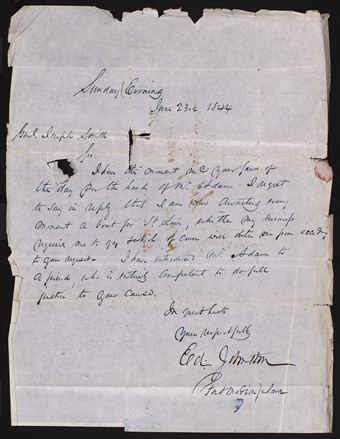 Sunday Evening
June 23d 1844
Genl Joseph Smith
Sir.
I have this moment rec your favor of
the day per the hands of Mr Adams. I regret
to say in reply that I am now awaiting every
moment a boat for St Louis, whither my business
require me to go which of course will deter me from acceding
to your request. I have introduced Mr. Adams to
a friend, who is entirely competent to do full
justice to your cause.
In great haste
Yours respectfully
Ed. Johnston
Fort Madison